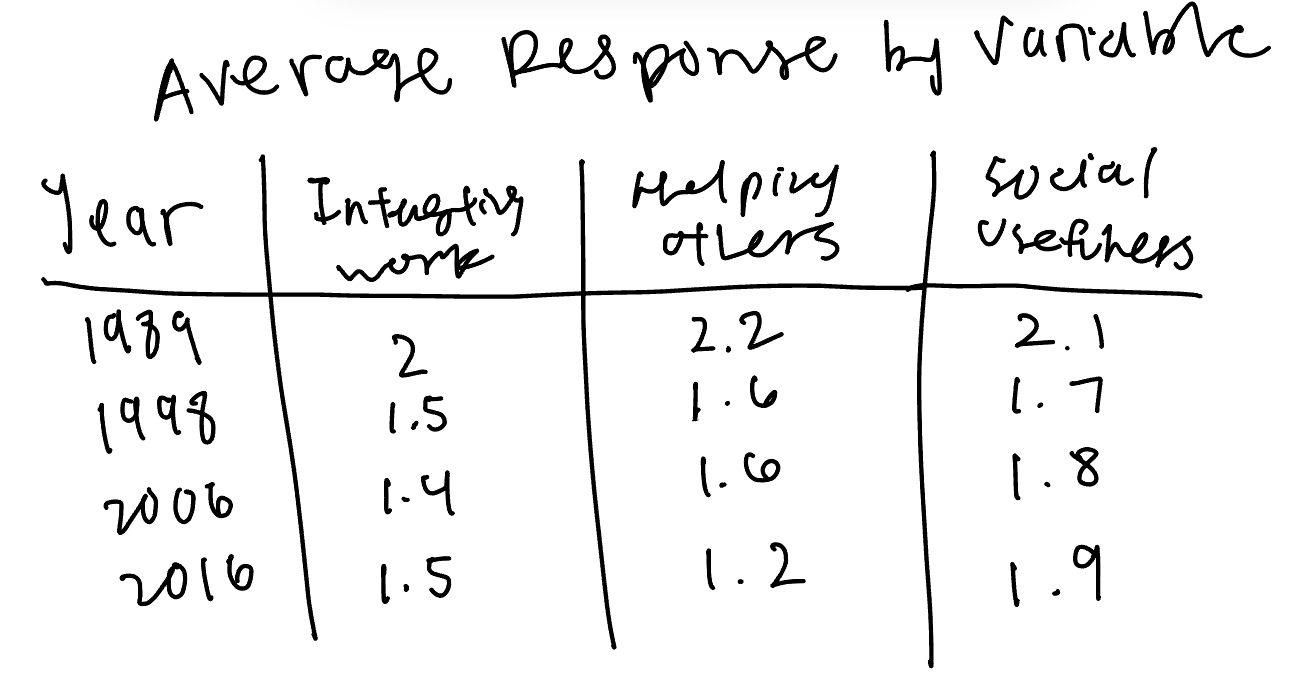 Average Response by Variable
Year | Interesting work | Helping others | Social Usefulness
1989 | 2 | 2.2 | 2.1
1998 | 1.5 | 1.6 | 1.7
2006 | 1.4 | 1.6 | 1.8
2016 | 1.5 | 1.2 | 1.9